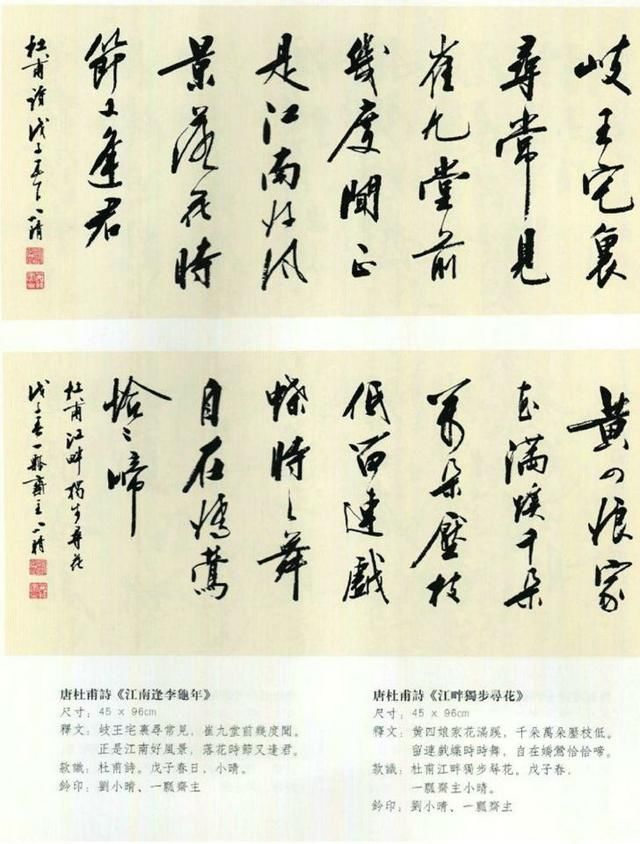 岐王宅裏
尋常見
崔九堂前
幾度聞正
是江南好風
景落花時
節又逢君
杜甫詩戊子春日小晴
黄四娘家
花滿蹊千朵
萬朵壓枝
低留連戲
蝶時〻舞
自在嬌鶯
恰〻啼
杜甫江畔獨步尋花
戊子春一瓢齋主小晴
唐杜甫詩《江南逢李龜年》
尺寸：45 × 96cm
釋文：岐王宅裏尋常見，崔九堂前幾度聞。
正是江南好風景，落花時節又逢君。
款識：杜甫詩。戊子春日，小晴。
鈐印：劉小晴、一瓢齋主
唐杜甫詩《江畔獨步尋花》
尺寸：45 × 96cm
釋文：黄四娘家花滿蹊，千朵萬朵壓枝低。
留連戲蝶時時舞，自在嬌鶯恰恰啼。
款識：杜甫江畔獨步尋花。戊子春，
一瓢齋主小晴。
鈐印：劉小晴、一瓢齋主